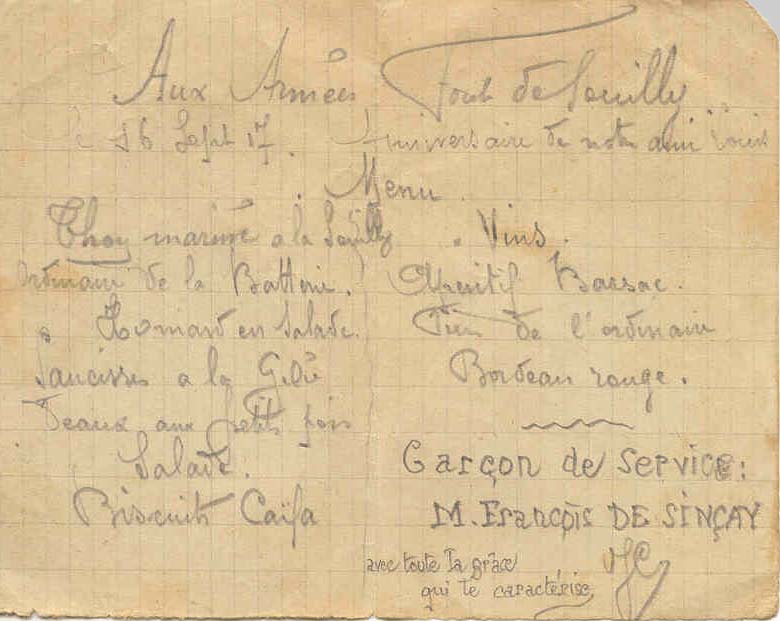 Aux Armées Fort de Souilly
le 16 Sept 17. Anniversaire de notre ami Louis
Menu.
Thon mariné a la Souilly
ordinaire de la Batterie.
Homard en Salade.
Saucisses a la Gelé
Veaux aux petits pois
Salade.
Biscuits Caïfa
. Vins.
Aperitif Barsac.
Vin de l'ordinair
Bordeau rouge.
Garçon de service:
M. François DE SINÇAY
avec toute la grâce
qui te caractérise